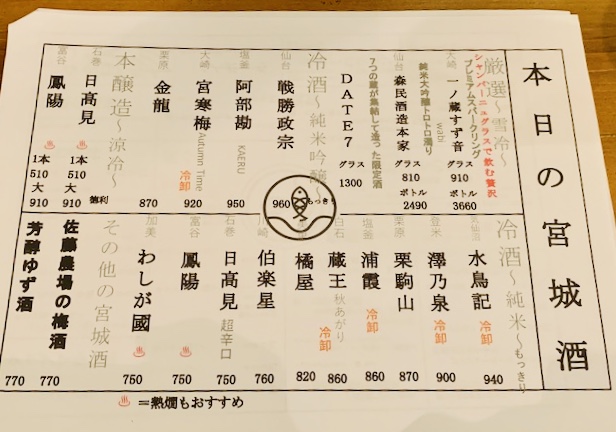 本日の宮城酒
厳選～雪冷～
シャンパーニュグラスで飲む贅沢
プレミアムスパークリング
大崎
一ノ蔵すず音
グラス
910
ボトル
3660
wabi
純米大吟醸トロトロ濁り
仙台
森民酒造本家
グラス
810
ボトル
2490
7つの蔵が集結して造った限定酒
DATE7
グラス
1300
冷酒～純米吟醸～
もっきり
仙台
戦勝政宗
960
塩釜
阿部勘
KAERU
950
大崎
宮寒梅
Autumn Time
冷卸
920
栗原
金龍
870
本醸造～涼冷～
徳利
石巻
日高見
♨
1本
510
大
910
富谷
鳳陽
♨
1本
510
大
910
冷酒～純米～もっきり
気仙沼
水鳥記
冷卸
940
登米
澤乃泉
冷卸
900
栗原
栗駒山
870
塩釜
浦霞
冷卸
860
白石
蔵王
秋あがり
冷卸
860
橘屋
820
川崎
伯楽星
760
石巻
日高見
超辛口
750
富谷
鳳陽
♨
750
加美
わしが國
♨
750
その他の宮城酒
佐藤農場の梅酒
770
芳醇ゆず酒
770
♨＝熱燗もおすすめ